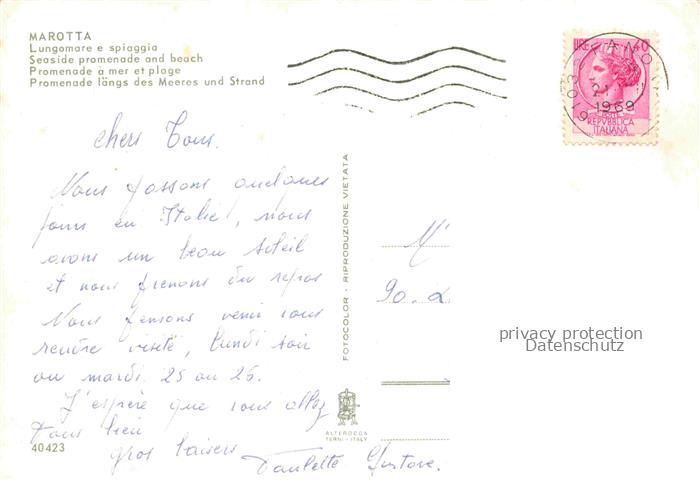 MAROTTA
Lungomare e spiaggia
Seaside promenade and beach
Promenade à mer et plage
Promenade längs des Meeres und Strand
LIRE 40
61032 FANO
21
1969
POSTE
REPVBBLICA
ITALIANA
chers Tous.
Nous passons quelques
jours en Italie, nous
avons un beau soleil
et nous prenons du repos
Nous pensons venir vous
rendre visite, lundi soir
ou mardi 25 ou 26.
J'espère que vous allez
Tous bien
gros baisers
Paulette Gustave.
40423
FOTOCOLOR - RIPRODUZIONE VIETATA
ALTEROCCA
TERNI - ITALY
90.
privacy protection
Datenschutz